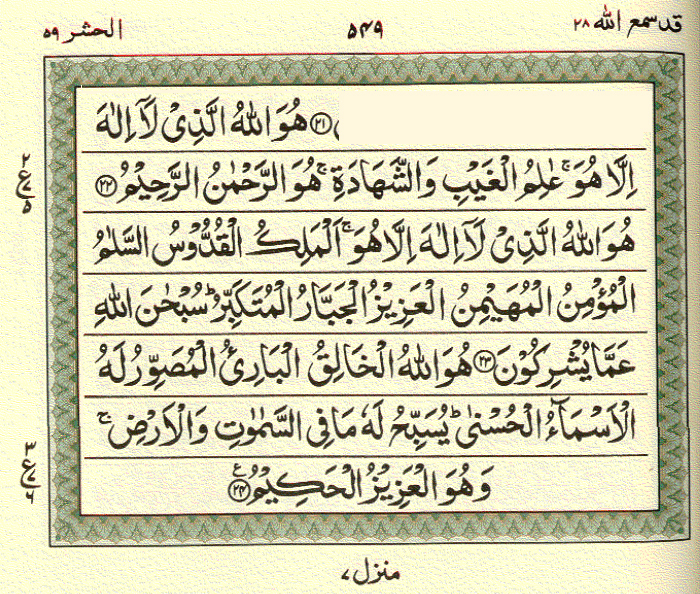 قد سمع الله ۲۸ ۵۴۹ الحشر ۵۹
﴿۲۱﴾ هُوَ اللّٰهُ الَّذِىْ لَاۤ اِلٰهَ
اِلَّا هُوَ ۚ عٰلِمُ الْغَيْبِ وَالشَّهَادَةِ ۚ هُوَ الرَّحْمٰنُ الرَّحِيْمُ ﴿۲۲﴾
هُوَ اللّٰهُ الَّذِىْ لَاۤ اِلٰهَ اِلَّا هُوَ ۚ اَلْمَلِكُ الْقُدُّوْسُ السَّلٰمُ
الْمُؤْمِنُ الْمُهَيْمِنُ الْعَزِيْزُ الْجَبَّارُ الْمُتَكَبِّرُ ؕ سُبْحٰنَ اللّٰهِ
عَمَّا يُشْرِكُوْنَ ﴿۲۳﴾ هُوَ اللّٰهُ الْخَالِقُ الْبَارِئُ الْمُصَوِّرُ لَهُ
الْاَسْمَآءُ الْحُسْنٰى ؕ يُسَبِّحُ لَهٗ مَا فِى السَّمٰوٰتِ وَالْاَرْضِ ۚ
وَهُوَ الْعَزِيْزُ الْحَكِيْمُ ﴿۲۴﴾
۲ ع ۵
۳ ع ۶
منزل ۷